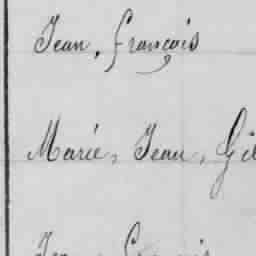 Jean, françois
Marie, Jean, Gil